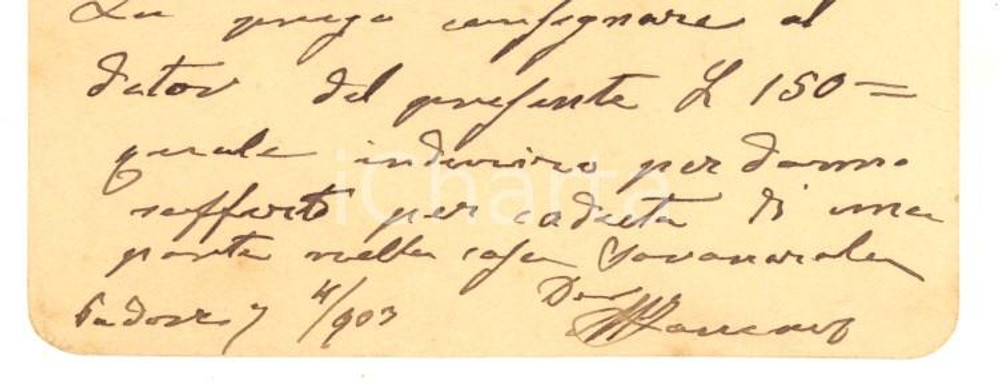 La prego consegnare al
dator del presente L 150=
quale indennizzo per danno
sofferto per caduta di una
porta nella casa Savonarola
Padova 7 4/903 Devmo
iCharta